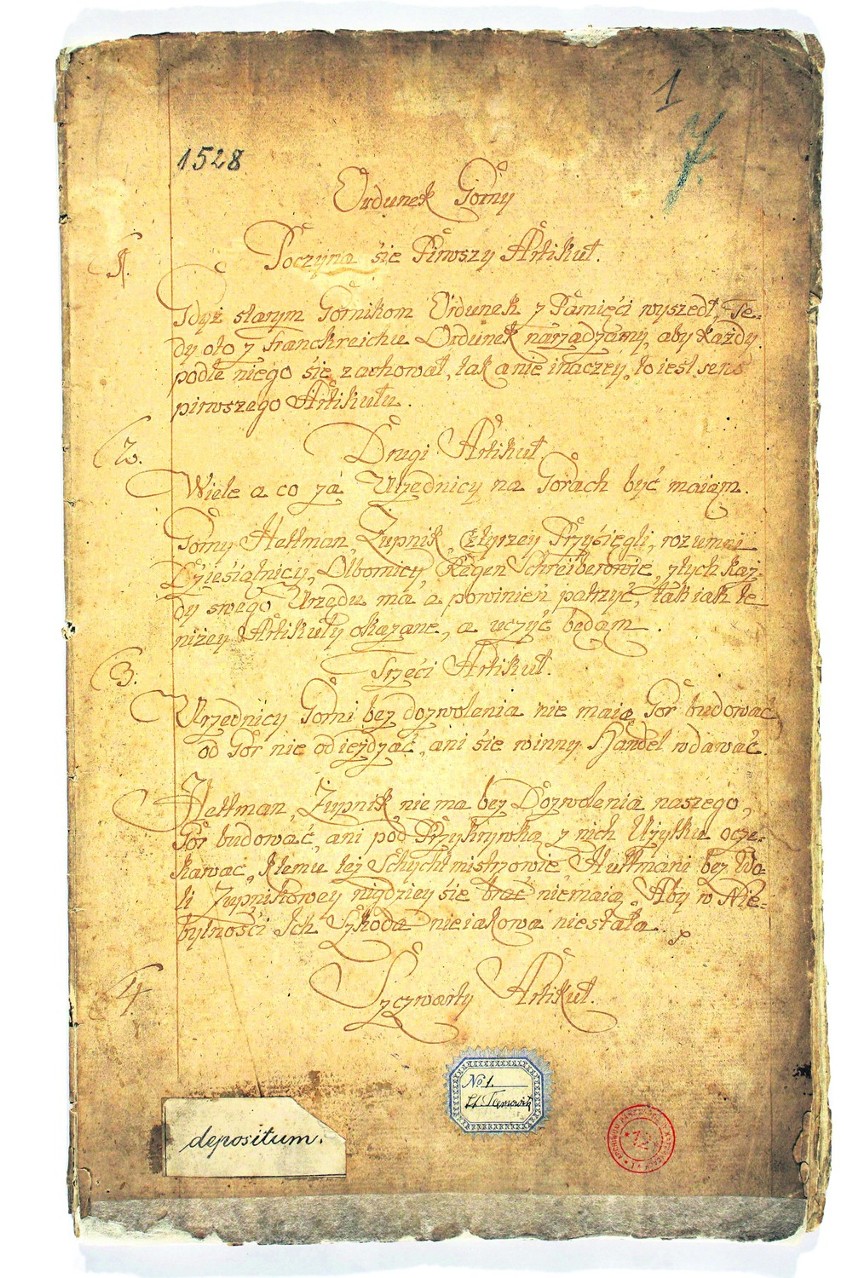 1
7.
1528
Ordunek Gorny
1.
Poczyna się Pirwszy Artikuł.
Gdyż starym Gornikom Ordunek z Pamięci wyszedł, Te-
dy oto z Franckreichu Ordunek narządzamy, aby każdy
podle niego się zachował, tak a nie inaczey, to iest sens
pirwszego Artikułu.
2.
Drugi Artikuł.
Wiele a co zá Urzędnicy na Gorach być maiąm.
Gorny Hettman, Żupnik, Cztyrzey Przysięgli, rozumni
Dzieśiątnicy, Olbornicy, Régen Schreiberowie, z tych każ-
dy swego Urzędu má a powinien patrzyć, tak iak te
niżey Artikuły okazane, a uczyć będąm.
3.
Trzeci Artikuł.
Urzędnicy Gorni bez dozwolenia nie maią Gor budować
od Gor nie odieżdzać, ani się w inny Handel wdawać.
Hettman, Żupnik, nie ma bez Dozwolenia naszego,
Gor budować, ani pod Przykrywką z nich Użytku ocze-
kawać, k temu też Schychtmistrzowie Huttmani bez Wo-
li Zupnikowey nigdziey się brać niemaią, Aby w Nie-
bytnośći Ich Szkoda nieiakowa niestała.
4.
Szczwarty Artikuł.
No 1.
depositum.